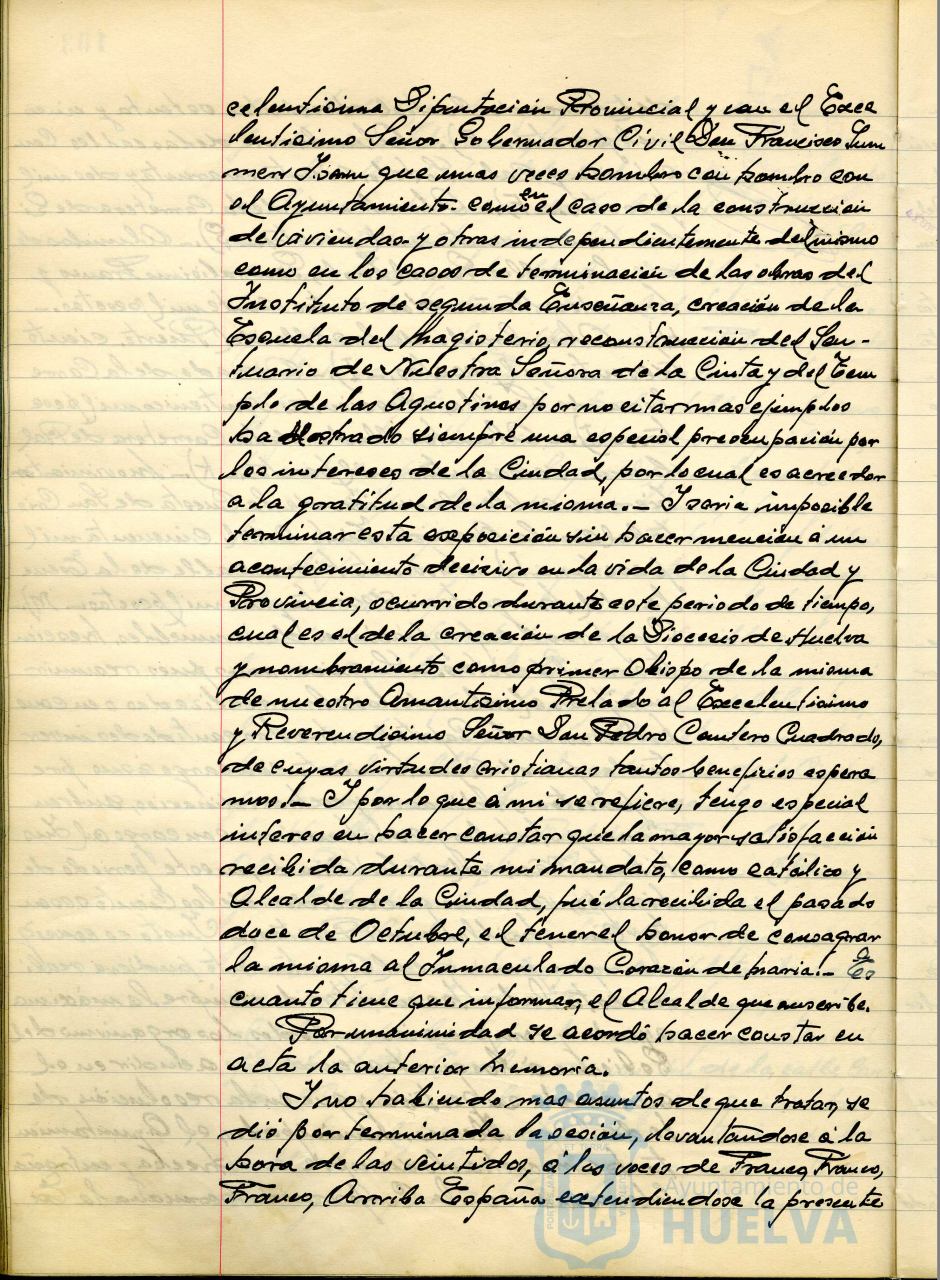 celentisima Diputación Provincial y con el Exce
lentisimo Señor Gobernador Civil Don Francisco Sum
mers Isern que unas veces hombro con hombro con
el Ayuntamiento como en el caso de la construcción
de viviendas y otras independientemente del mismo
como en los casos de terminación de las obras del
Instituto de segunda Enseñanza, creación de la
Escuela del Magisterio, reconstrucción del San-
tuario de Nuestra Señora de la Cinta y del Tem
plo de las Agustinas por no citar mas ejemplos
ha mostrado siempre una especial preocupación por
los intereses de la Ciudad, por lo cual es acreedor
a la gratitud de la misma.- Y seria imposible
terminar esta exposición sin hacer mención á un
acontecimiento decisivo en la vida de la Ciudad y
Provincia, ocurrido durante este periodo de tiempo,
cual es el de la creación de la Diocesis de Huelva
y nombramiento como primer Obispo de la misma
de nuestro Amantisimo Prelado al Excelentisimo
y Reverendisimo Señor Don Pedro Cantero Cuadrado,
de cuyas virtudes cristianas tantos beneficios espera
mos.- Y por lo que á mi se refiere, tengo especial
interes en hacer constar que la mayor satisfacción
recibida durante mi mandato, como católico y
Alcalde de la Ciudad, fué la recibida el pasado
doce de Octubre, el tener el honor de consagrar
la misma al Inmaculado Corazón de maria.- Es
cuanto tiene que informar, el Alcalde que suscribe.
Por unanimidad se acordó hacer constar en
acta la anterior memoria.
Y no habiendo mas asuntos de que tratar, se
dió por terminada la sesión, levantandose á la
hora de las veintidos, á los voces de Franco, Franco,
Franco, Arriba España extendiendose la presente
Ayuntamiento de
HUELVA